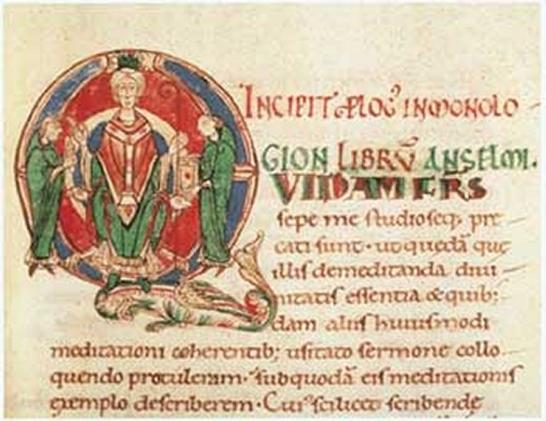 INCIPIT PLOG' IN MONOLO
GION LIBRŪ ANSELMI.
QUIDAM FRS
sepe me studioseq, pre
cati sunt· ut quedā que
illis de meditanda diui
nitatis essentia & quib;
dam aliis huiusmodi
meditationi coherentib; usitato sermone collo
quendo protuleram· sub quodā eis meditationis
exemplo describerem· Cui' scilicet scribende